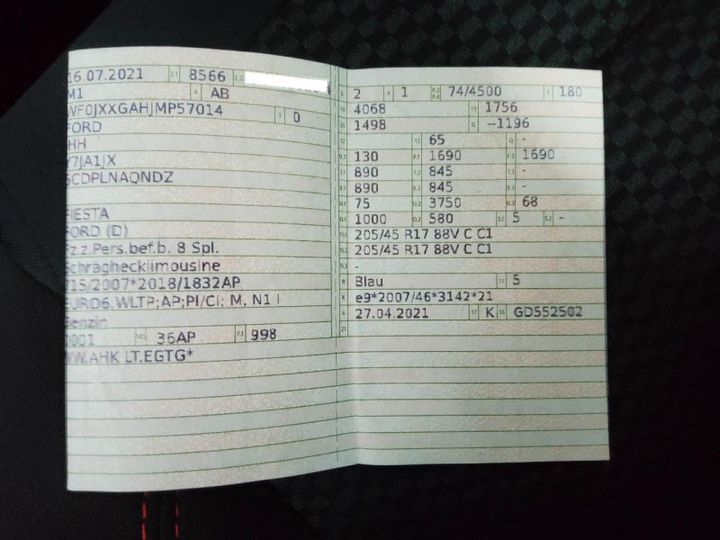 16.07.2021 8566
M1 AB
VF0JXXGAHJMP57014 0
FORD
HH
Y7JA1JX
5CDPLNAQNDZ
FIESTA
FORD (D)
Fz.z.Pers.bef.b. 8 Spl.
Schräghecklimousine
715/2007*2018/1832AP
EURO6 WLTP;AP;PI/CI; M, N1 I
Benzin
0001 36AP 998
WW.AHK LT.EGTG*
2 1 74/4500 180
4068 1756
1498 --1196
65 -
130 1690 1690
890 845 -
890 845 -
75 3750 68
1000 580 5 -
205/45 R17 88V C C1
205/45 R17 88V C C1
-
Blau 5
e9*2007/46*3142*21
27.04.2021 K GD552502